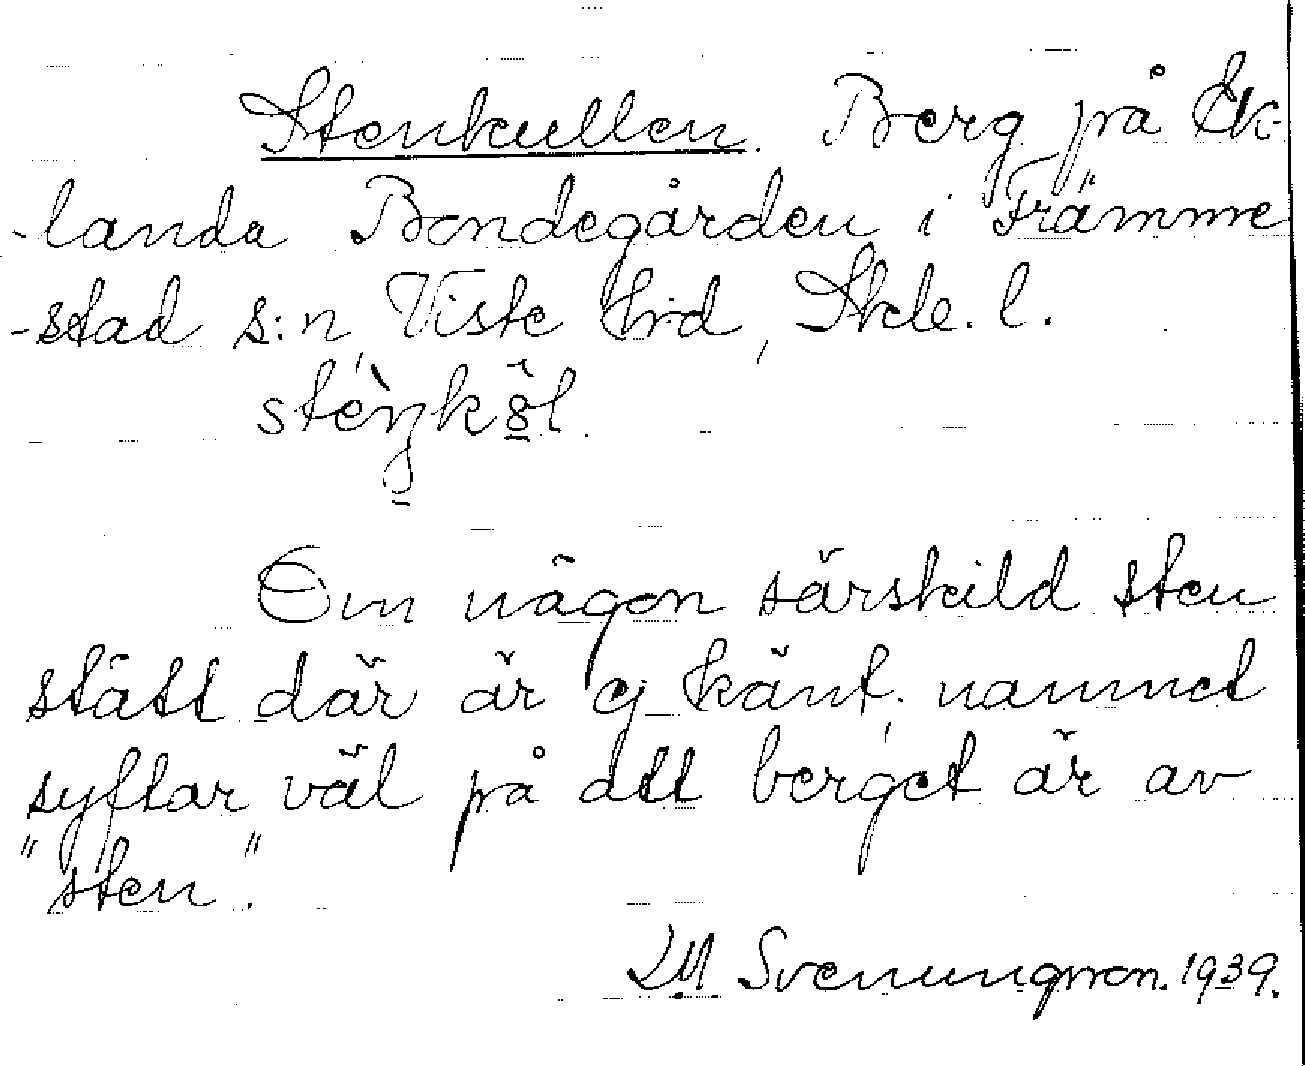 Stenkullen. Berg på Ek-
-landa Bondegården i Främme
-stad s:n, Viste hrd, Skbl. l.
Om någon särskild sten
stått där är ej känt, namnet
syftar väl på att berget är av
"sten".
LM Svenungsson. 1939.